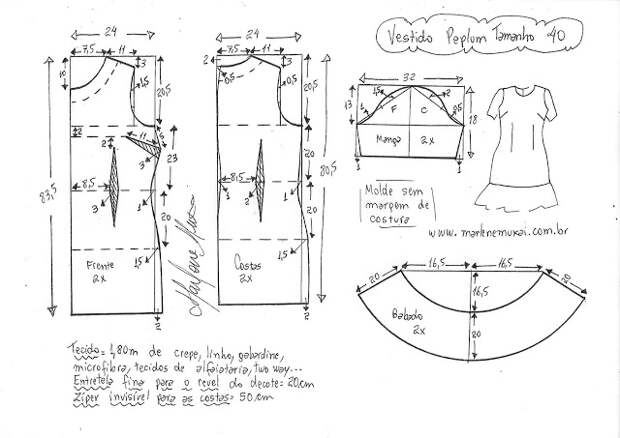 Vestido Peplum Tamanho 40
24
7,5
11
3
10
1,5
20,5
2
2
11
3
23
8,5
3
1
20
1,5
83,5
Frente
2x
2
24
7,5
11
2
3
0,5
0,5
20,5
20
8,5
3
1
1
20
1,5
80,5
Costas
2x
2
Marlene Mukai
32
13
1,5
2
1
F
C
0,5
18
Manga
2x
1
1
Molde sem
margem de
costura
www.marlenemukai.com.br
16,5
16,5
20
20
16,5
20
Babado
2x
Tecido= 1,80m de crepe, linho, gabardine,
microfibra, tecidos de alfaiataria, two way...
Entretela fina para o revel do decote= 20cm
Zíper invisível para as costas= 50cm